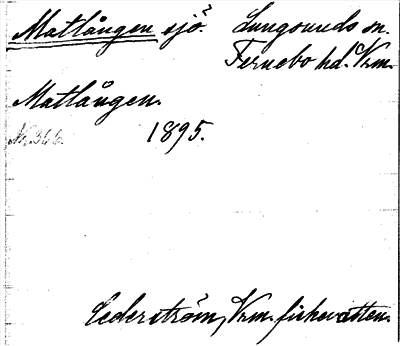 Matlången sjö? Lungsunds sn.
Fernebo hd. Vrm.
Matlången.
Nr. 366. 1895.
Cederström, Vrm. fiskevatten.